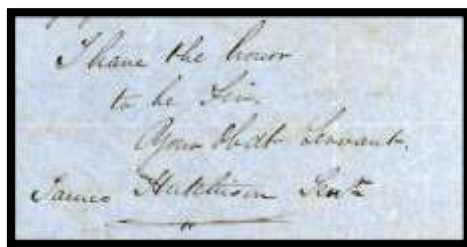 I have the honor
to be Sir,
Your Obdt Servant,
James Hutchison